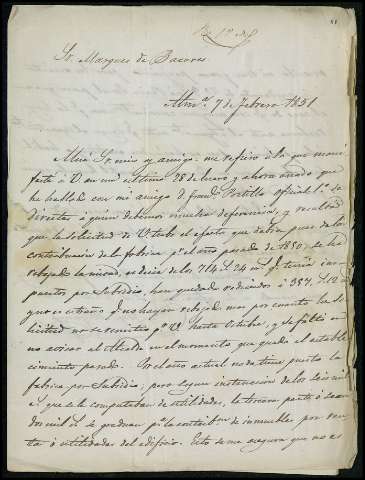 Sr. Marques de Bacares
Alm.ª 7 de febrero 1851
Muy Sr. mio y amigo: me refiero á la que mani
festé á V. en mi ultima 28 de enero y ahora añado que
he hablado con mi amigo D. Fran.co Portillo oficial 1.º de
directas á quien debemos muchas deferencias, y resultó
que la solicitud de V. tubo el efecto que debia pues de la
contribucion de la fabrica p.r el año pasado de 1850, se ha
rebajado la mitad, es decir de los 714 r.s 24 m.s q.e tenia im-
puestos por Subsidio, han quedado reducidos á 357 r.s 12 m.s
que es estraño q.e no hayan rebajado mas por cuanto la so-
licitud no se remitió p.r V. hasta Octubre, y se faltó en
no avisar al Alcalde en el momento que quedó el estable-
cimiento parado. Por el año actual no da tiene puesto la
fabrica por Subsidio; pero segun instruccion de los seis mil
r.s que se le computaban de utilidades, la tercera parte ó sean
dos mil r.s se graduan p.a la contrib.on de inmuebles por ren-
ta ó utilidades del edificio. Esto se me asegura que no es